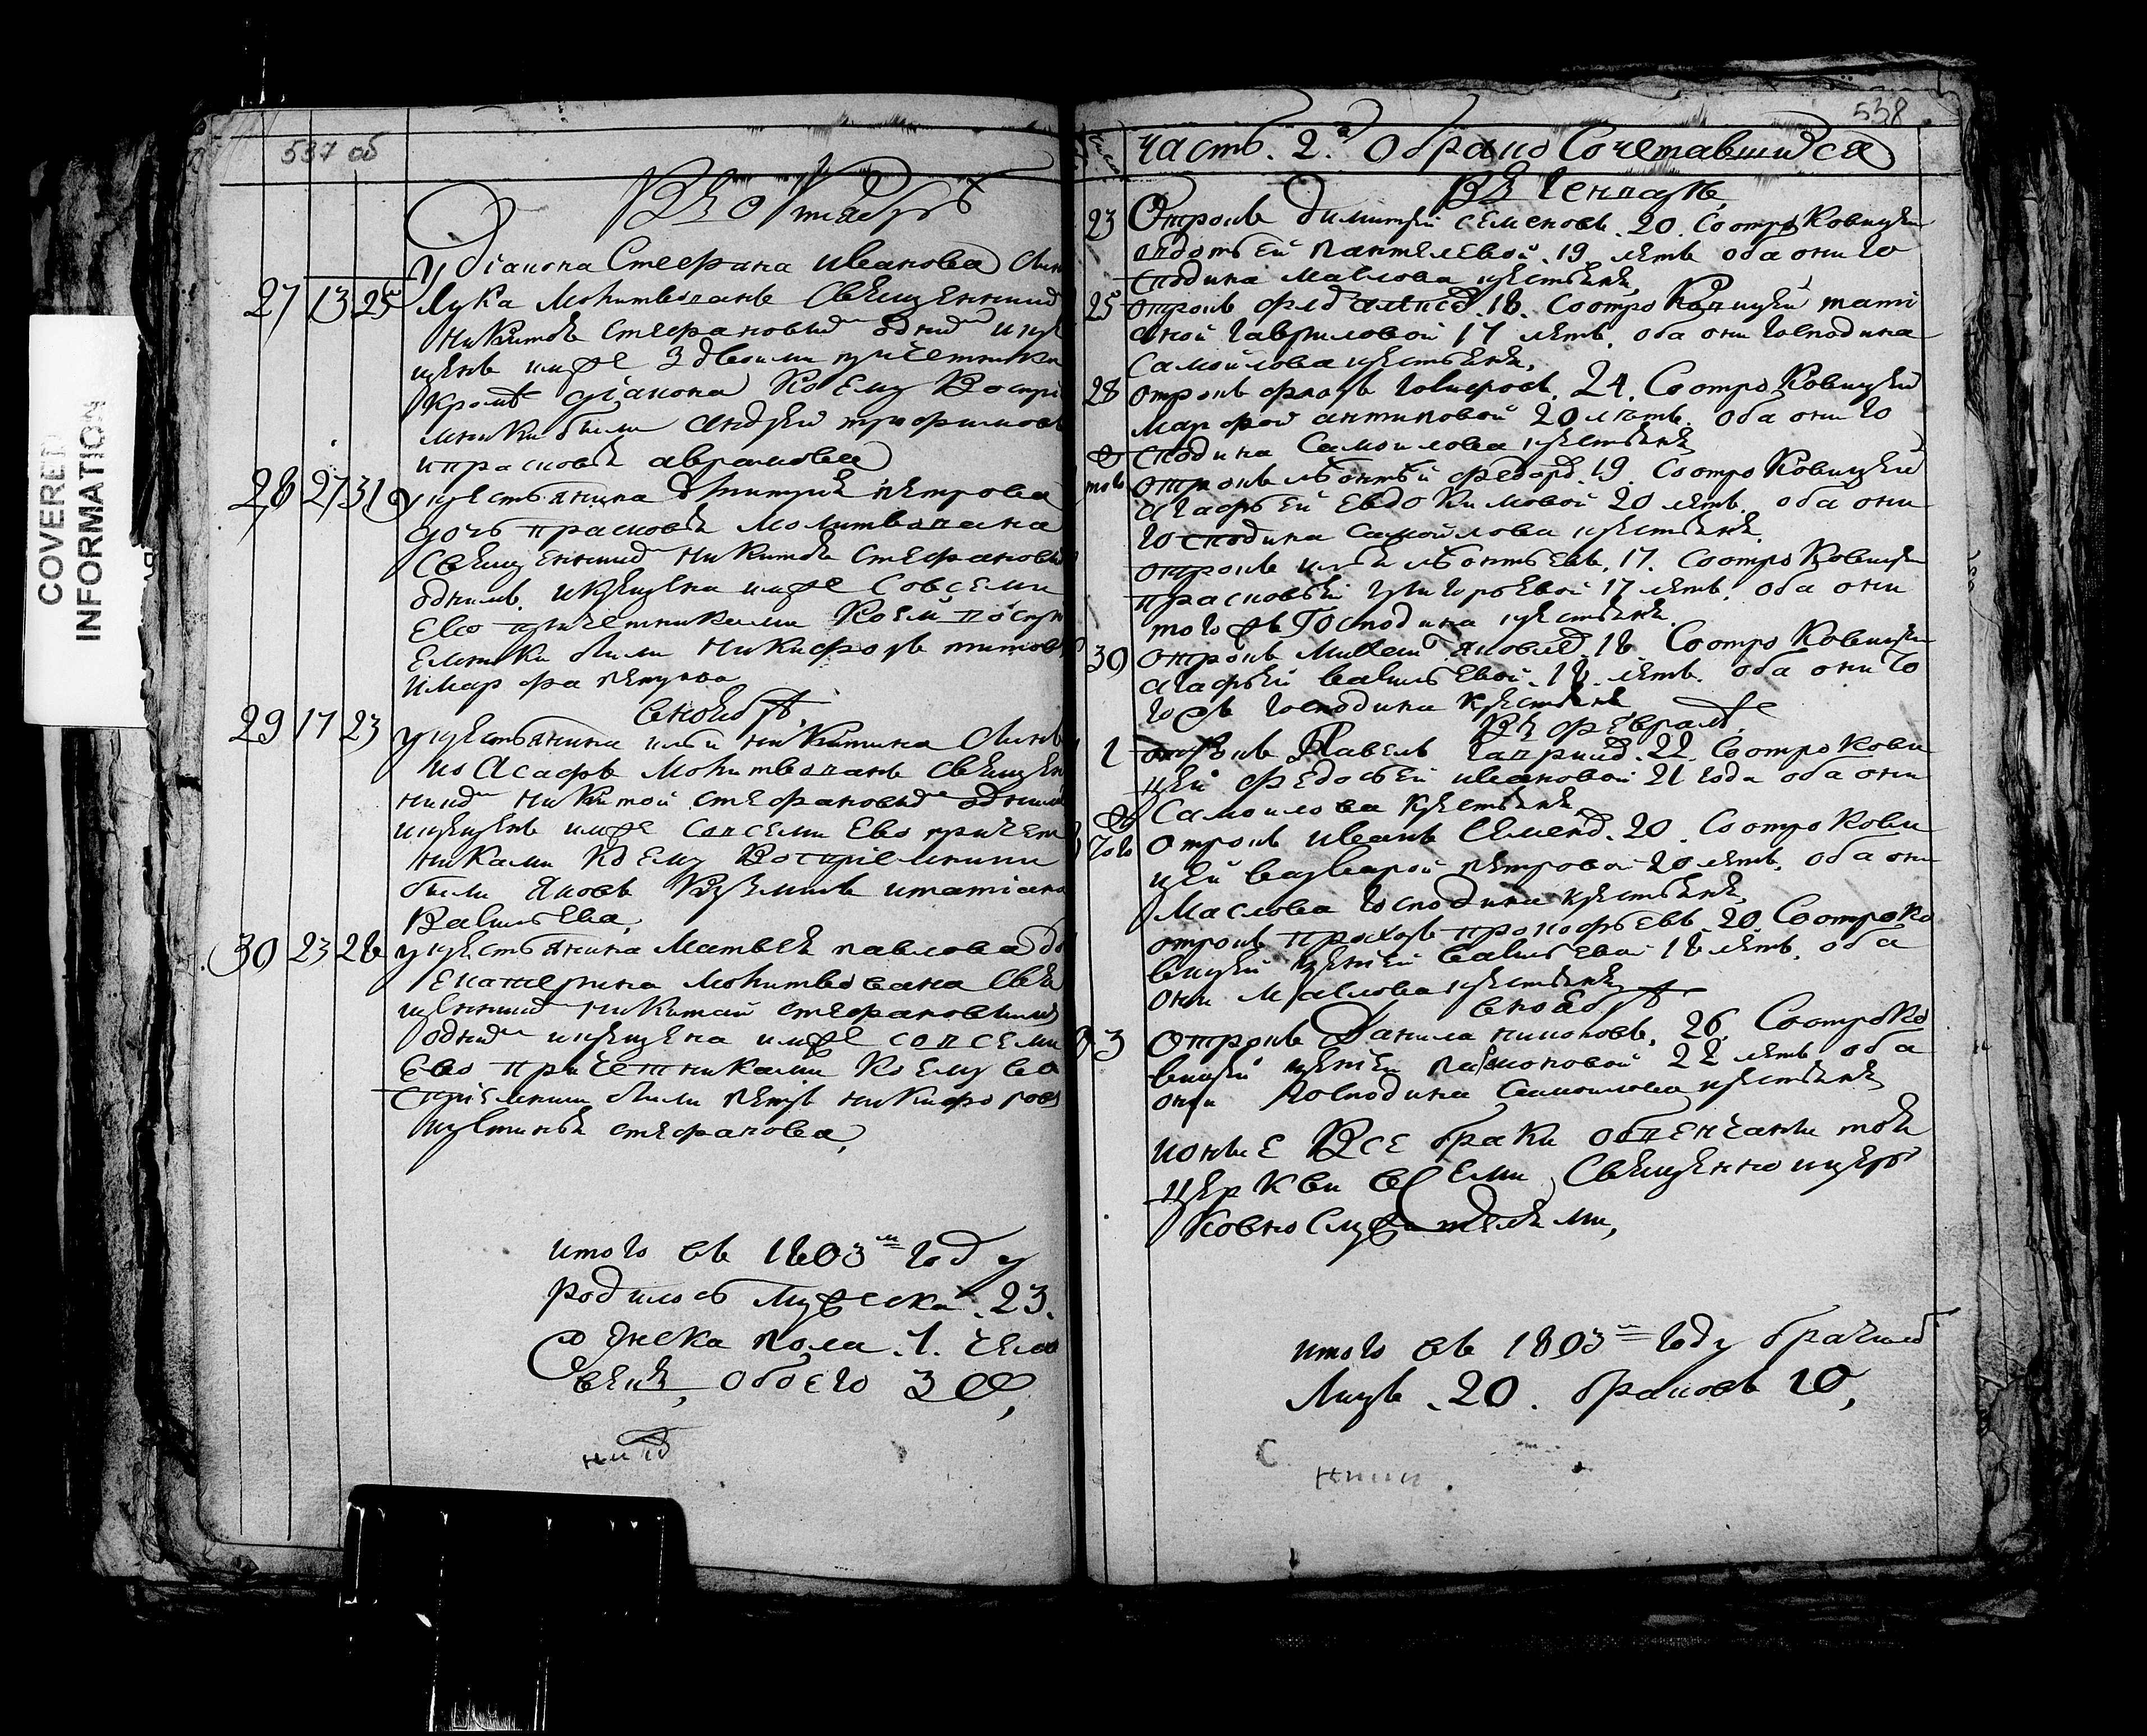 537 об
Въ Октябрѣ
27 13 25 у диакона Стефана Иванова сын
Лука молитвованъ священником
Никитою Стефановым одним и кре
щенъ им же з двоими причетника
кроме диакона коему воспри
мники были Андрей Трофимовъ
и Прасковья Аврамова
28 27 31 у крестьянина Дмитрия Петрова
дочь Прасковья молитвована
священником Никитою Стефановым
одним и крещена им же со всеми
Ево причетниками коей воспри
емники были Никифоръ Титовъ
и Марфа Петрова
в ноябрѣ
29 17 23 у крестьянина Ильи Никитина сынъ
Иоасафъ молитвованъ священ
ником Никитой Стефановым одним
и крещенъ им же со всеми Ево причет
никами коему восприемники
были Яковъ Кузьминъ и Татиана
Васильева,
30 23 28 у крестьянина Матвея Павлова до
Екатерина молитвована свя
щенником Никитой Стефановымъ
одним и крещена им же со всеми
Ево причетниками коему во
сприемники были Петръ Никифоровъ
Устинья Стефанова,
итого въ 1803м году
родилось мужеска 23.
женска пола 7. чело
векъ, обоего 30,
COVERED
INFORMATION
538
часть. 2.я о бракосочетавшихся
Въ генварѣ,
23 Отрокъ Димитрей Семеновъ. 20. со отроковицей
Авдотьей Пантелевой. 19. летъ оба они го
сподина Маслова крестьяне,
25 отрокъ 18. со отроковицей Тати
аной Гавриловой 17 летъ. оба они господина
Самойлова крестьяне,
28 отрокъ 24. со отроковицей
Марфой Антиповой 20 летъ. оба они го
сподина Самойлова крестьяне
того отрокъ Леонтий Федоров. 19. со отроковицей
Агафьей Евдокимовой 20 летъ. оба они
господина Самойлова крестьяне.
отрокъ Илья Леонтьевъ. 17. со отроковицей
Прасковьей Григорьевой 17 летъ. оба они
того жъ господина крестьяне.
30 отрокъ Михей Яковлев. 18. со отроковицей
Агафьей Васильевой. 18. летъ. оба они то
го жъ господина крестьяне
Въ феврале.
1 отрокъ Павелъ Гаврилов. 22. со отрокови
цей Федосьей Ивановой 21 года оба они
Самойлова крестьяне
того Отрокъ Иванъ Семенов. 20. со отрокови
цей Варварой Петровой 20 летъ. оба они
Маслова господина крестьяне,
отрокъ Прохоръ Прокофьевъ. 20. со отроко
вицей Васильевой 18 летъ. оба
они Маслова крестьяне
в ноябрѣ
3 отрокъ Данила 26. со отроко
вицей 22 летъ оба
они господина Самойлова крестьяне
коные все браки обвенчаны той
церкви всеми священно и цер
ковнослужителями,
итого въ 1803м году брачных
лицъ. 20. браковъ 10,